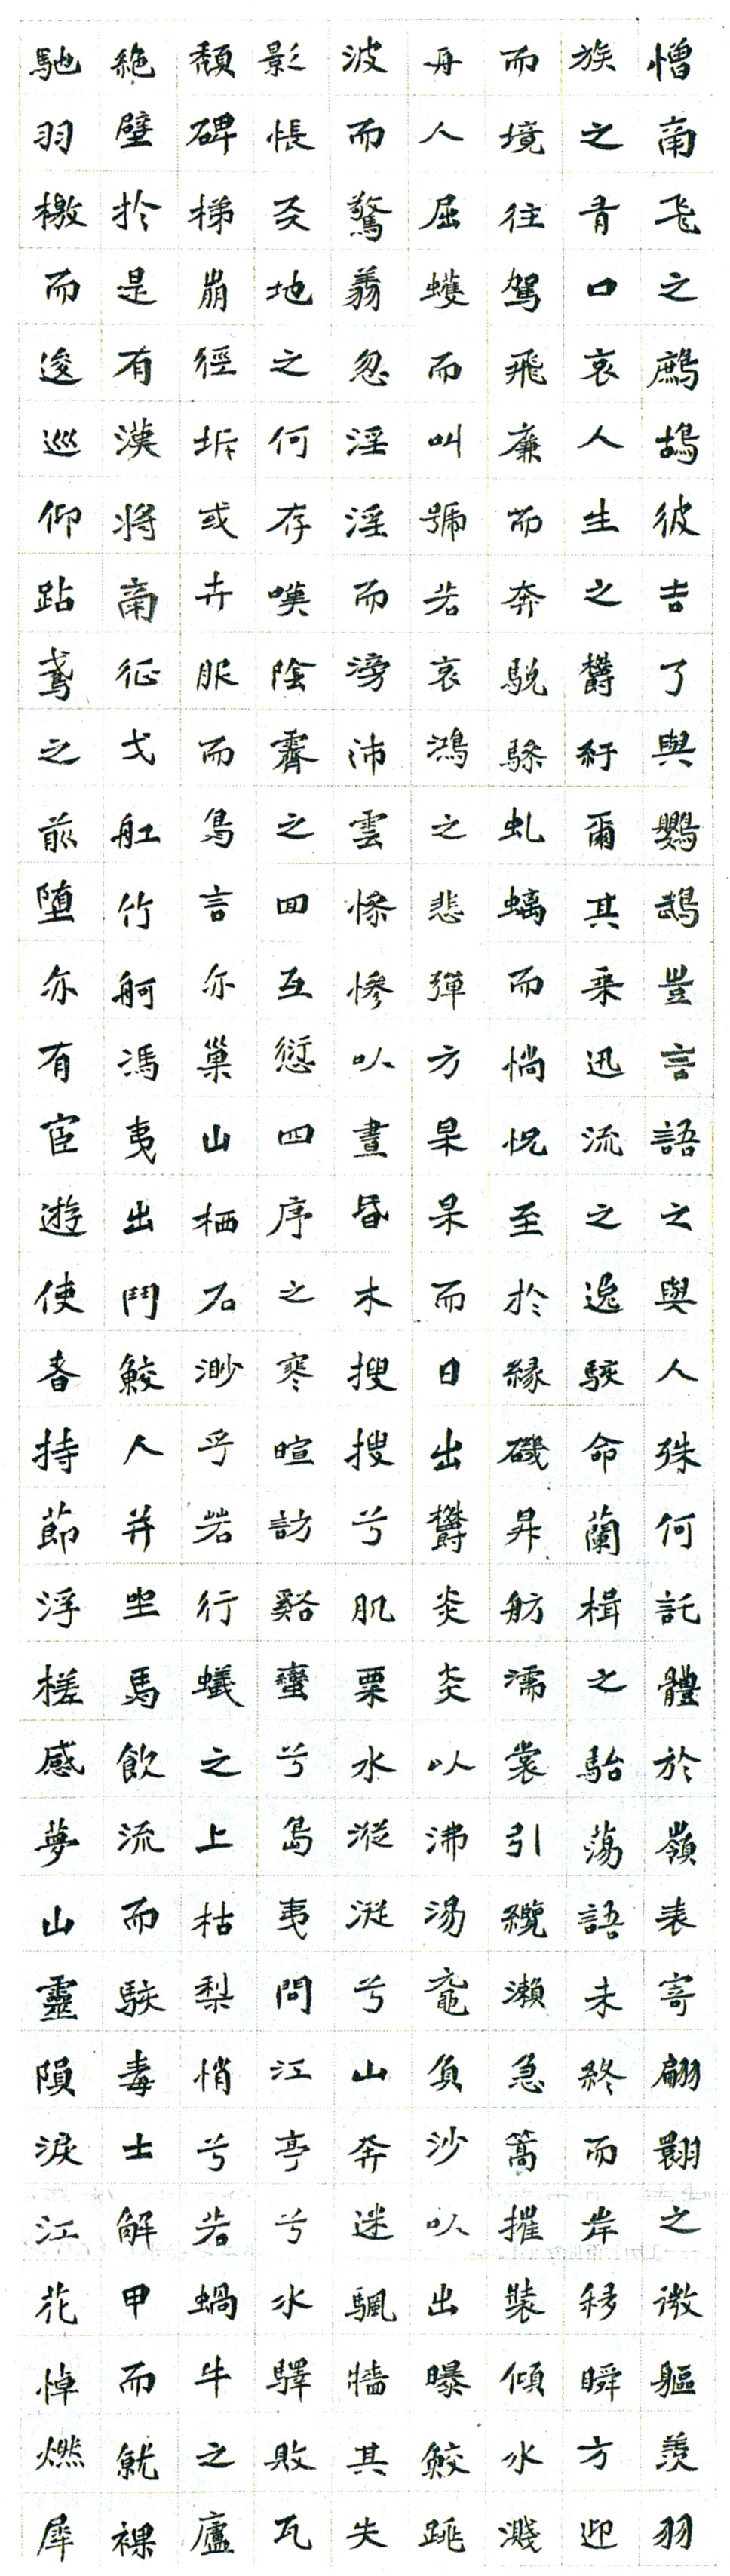 憎南飛之鷓鴣彼吉了與鸚鵡豈言語之與人殊何託體於嶺表寄翩翾之微軀羨羽
族之有口哀人生之欝紆爾其乗迅流之逸駭命蘭楫之駘蕩語未終而岸移瞬方迎
而境往駕飛廉而奔駾騄虬螭而惝怳至於縁磯舁舫濡裳引纜瀬急篙摧裝傾水濺
舟人屈蠖而叫號若哀鴻之悲彈方杲杲而日出欝炎炎以沸湯黿負沙以出曝鮫跳
波而驚蒻忽淫淫而滂沛雲慘慘以晝昏木搜搜兮肌栗水漎漎兮山奔迷颿牆其失
影悵叐地之何存嘆陰霽之回互愆四序之寒暄訪谿蠻兮島夷問江亭兮水驛敗瓦
頽碑梯崩徑坼或卉服而鳥言亦巢山栖石渺乎若行蟻之上枯梨悄兮若蝸牛之廬
絶壁於是有漢將南征戈舡竹舸馮夷出鬥鮫人并坐馬飲流而駭毒士解甲而就裸
馳羽檄而逡巡仰跕鳶之前墮亦有宦遊使者持節浮槎感夢山靈隕淚江花悼燃犀